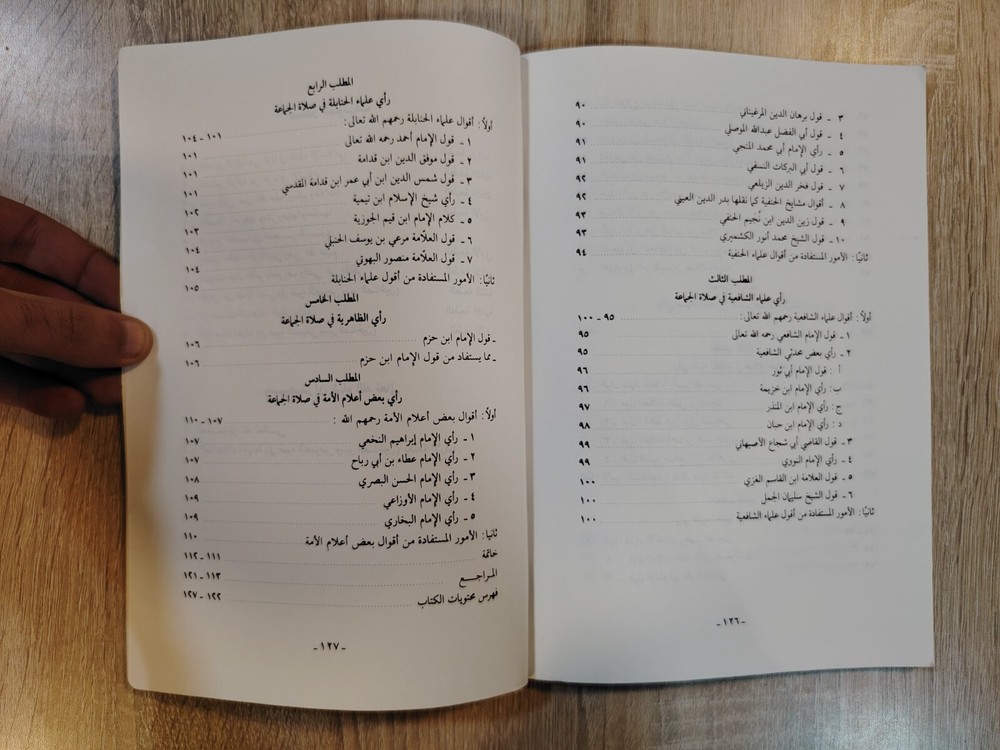 ٣ ـ قول برهان الدين المرغيناني ٩٠
٤ ـ قول أبي الفضل عبدالله الموصلي ٩٠
٥ ـ رأي الإمام أبي محمد المنجي ٩١
٦ ـ قول أبي البركات النسفي ٩١
٧ ـ قول فخر الدين الزيلعي ٩٢
٨ ـ أقوال مشايخ الحنفية كما نقلها بدر الدين العيني ٩٢
٩ ـ قول زين الدين ابن نُجَيم الحنفي ٩٣
١٠ ـ قول الشيخ محمد أنور الكشميري ٩٣
ثانيًا: الأمور المستفادة من أقوال علماء الحنفية ٩٤
المطلب الثالث
رأي علماء الشافعية في صلاة الجماعة
أولاً: أقوال علماء الشافعية رحمهم الله تعالى: ٩٥ ـ ١٠٠
١ ـ قول الإمام الشافعي رحمه الله تعالى ٩٥
٢ ـ رأي بعض محدثي الشافعية ٩٥
أ : قول الإمام أبي ثور ٩٦
ب: رأي الإمام ابن خزيمة ٩٦
ج: رأي الإمام ابن المنذر ٩٧
د : رأي الإمام ابن حبان ٩٨
٣ ـ قول القاضي أبي شجاع الأصبهاني ٩٩
٤ ـ رأي الإمام النووي ٩٩
٥ ـ قول العلامة ابن القاسم الغزي ١٠٠
٦ ـ قول الشيخ سليمان الجمل ١٠٠
ثانيًا: الأمور المستفادة من أقول علماء الشافعية ١٠٠
ـ ١٢٦ ـ
المطلب الرابع
رأي علماء الحنابلة في صلاة الجماعة
أولاً: أقوال علماء الحنابلة رحمهم الله تعالى: ١٠١ ـ ١٠٤
١ ـ قول الإمام أحمد رحمه الله تعالى ١٠١
٢ ـ قول موفق الدين ابن قدامة ١٠١
٣ ـ قول شمس الدين ابن أبي عمر ابن قدامة المقدسي ١٠١
٤ ـ رأي شيخ الإسلام ابن تيمية ١٠٢
٥ ـ كلام الإمام ابن قيم الجوزية ١٠٣
٦ ـ قول العلاّمة مرعي بن يوسف الحنبلي ١٠٤
٧ ـ قول العلاّمة منصور البهوتي ١٠٤
ثانيًا: الأمور المستفادة من أقول علماء الحنابلة ١٠٥
المطلب الخامس
رأي الظاهرية في صلاة الجماعة
ـ قول الإمام ابن حزم ١٠٦
ـ مما يستفاد من قول الإمام ابن حزم ١٠٦
المطلب السادس
رأي بعض أعلام الأمة في صلاة الجماعة
أولاً: أقوال بعض أعلام الأمة رحمهم الله : ١٠٧ ـ ١١٠
١ ـ رأي الإمام إبراهيم النخعي ١٠٧
٢ ـ رأي الإمام عطاء بن أبي رباح ١٠٧
٣ ـ رأي الإمام الحسن البصري ١٠٨
٤ ـ رأي الإمام الأوزاعي ١٠٩
٥ ـ رأي الإمام البخاري ١٠٩
ثانيا: الأمور المستفادة من أقوال بعض أعلام الأمة ١١٠
خاتمة ١١١ ـ ١١٢
المراجـــع ١١٣ ـ ١٢١
فهرس محتويات الكتاب ١٢٢ ـ ١٢٧
ـ ١٢٧ ـ